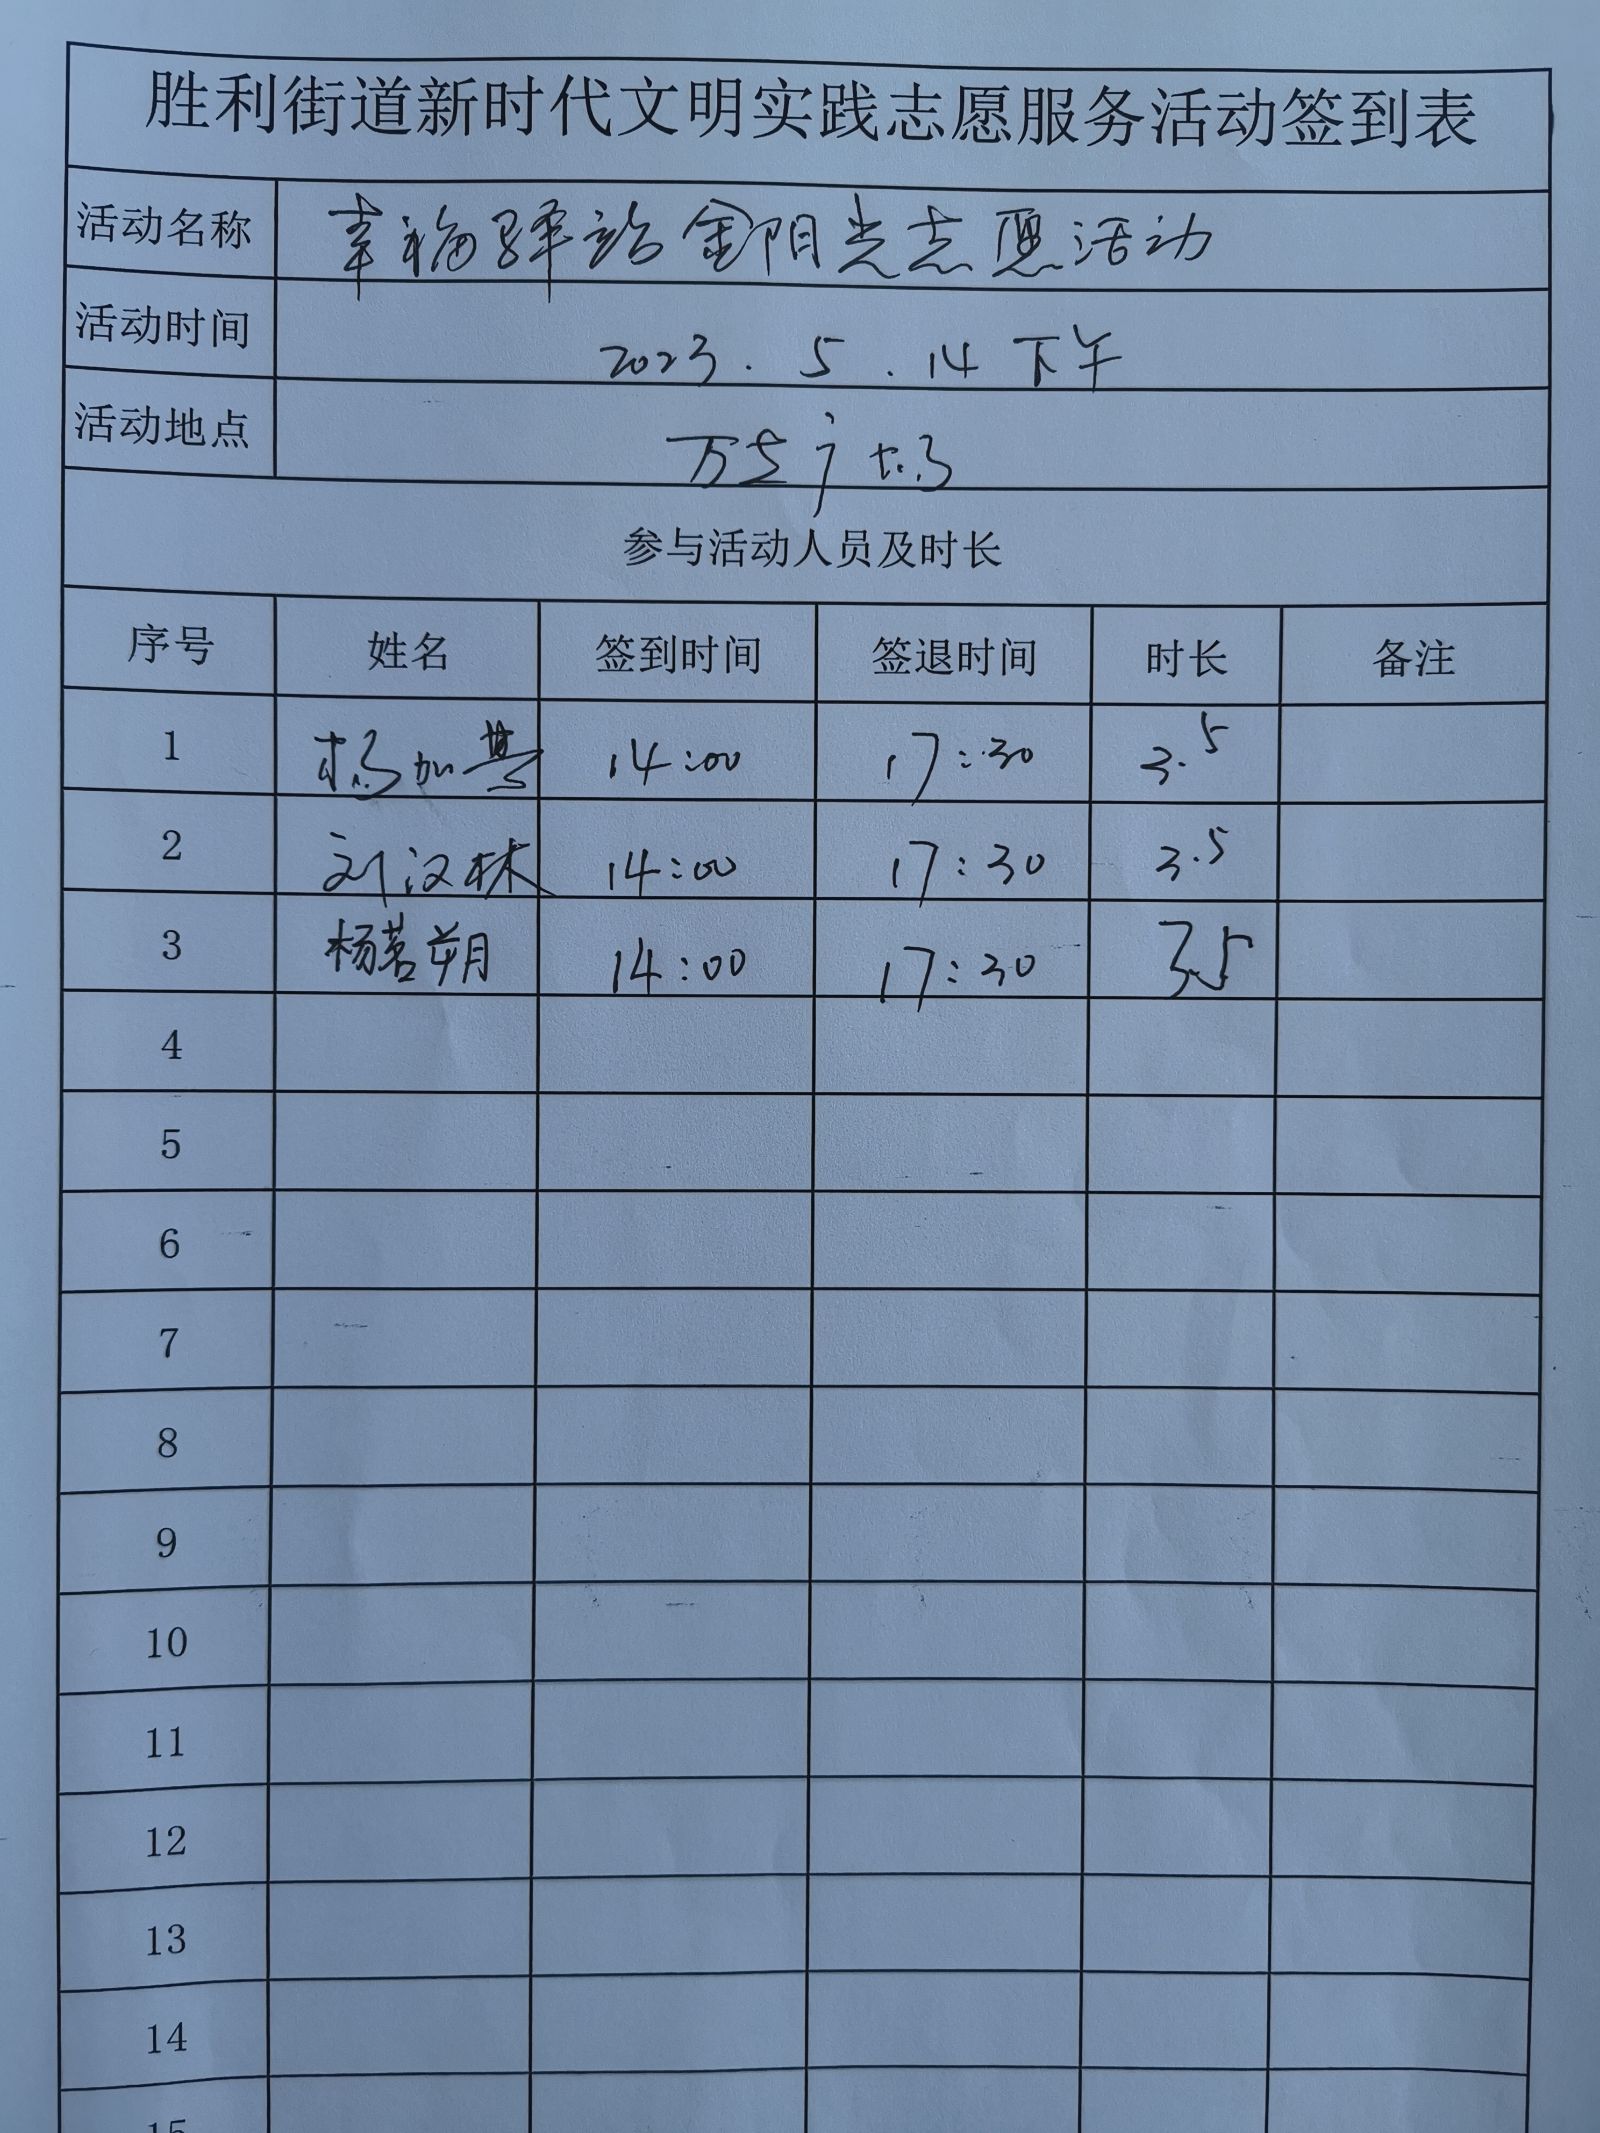 胜利街道新时代文明实践志愿服务活动签到表
活动名称 幸福驿站金阳光志愿活动
活动时间 2023.5.14下午
活动地点 万达广场
参与活动人员及时长
序号 姓名 签到时间 签退时间 时长 备注
1 杨加 14:00 17:30 3.5
2 刘汉林 14:00 17:30 3.5
3 杨茗朔 14:00 17:30 3.5
4
5
6
7
8
9
10
11
12
13
14
15